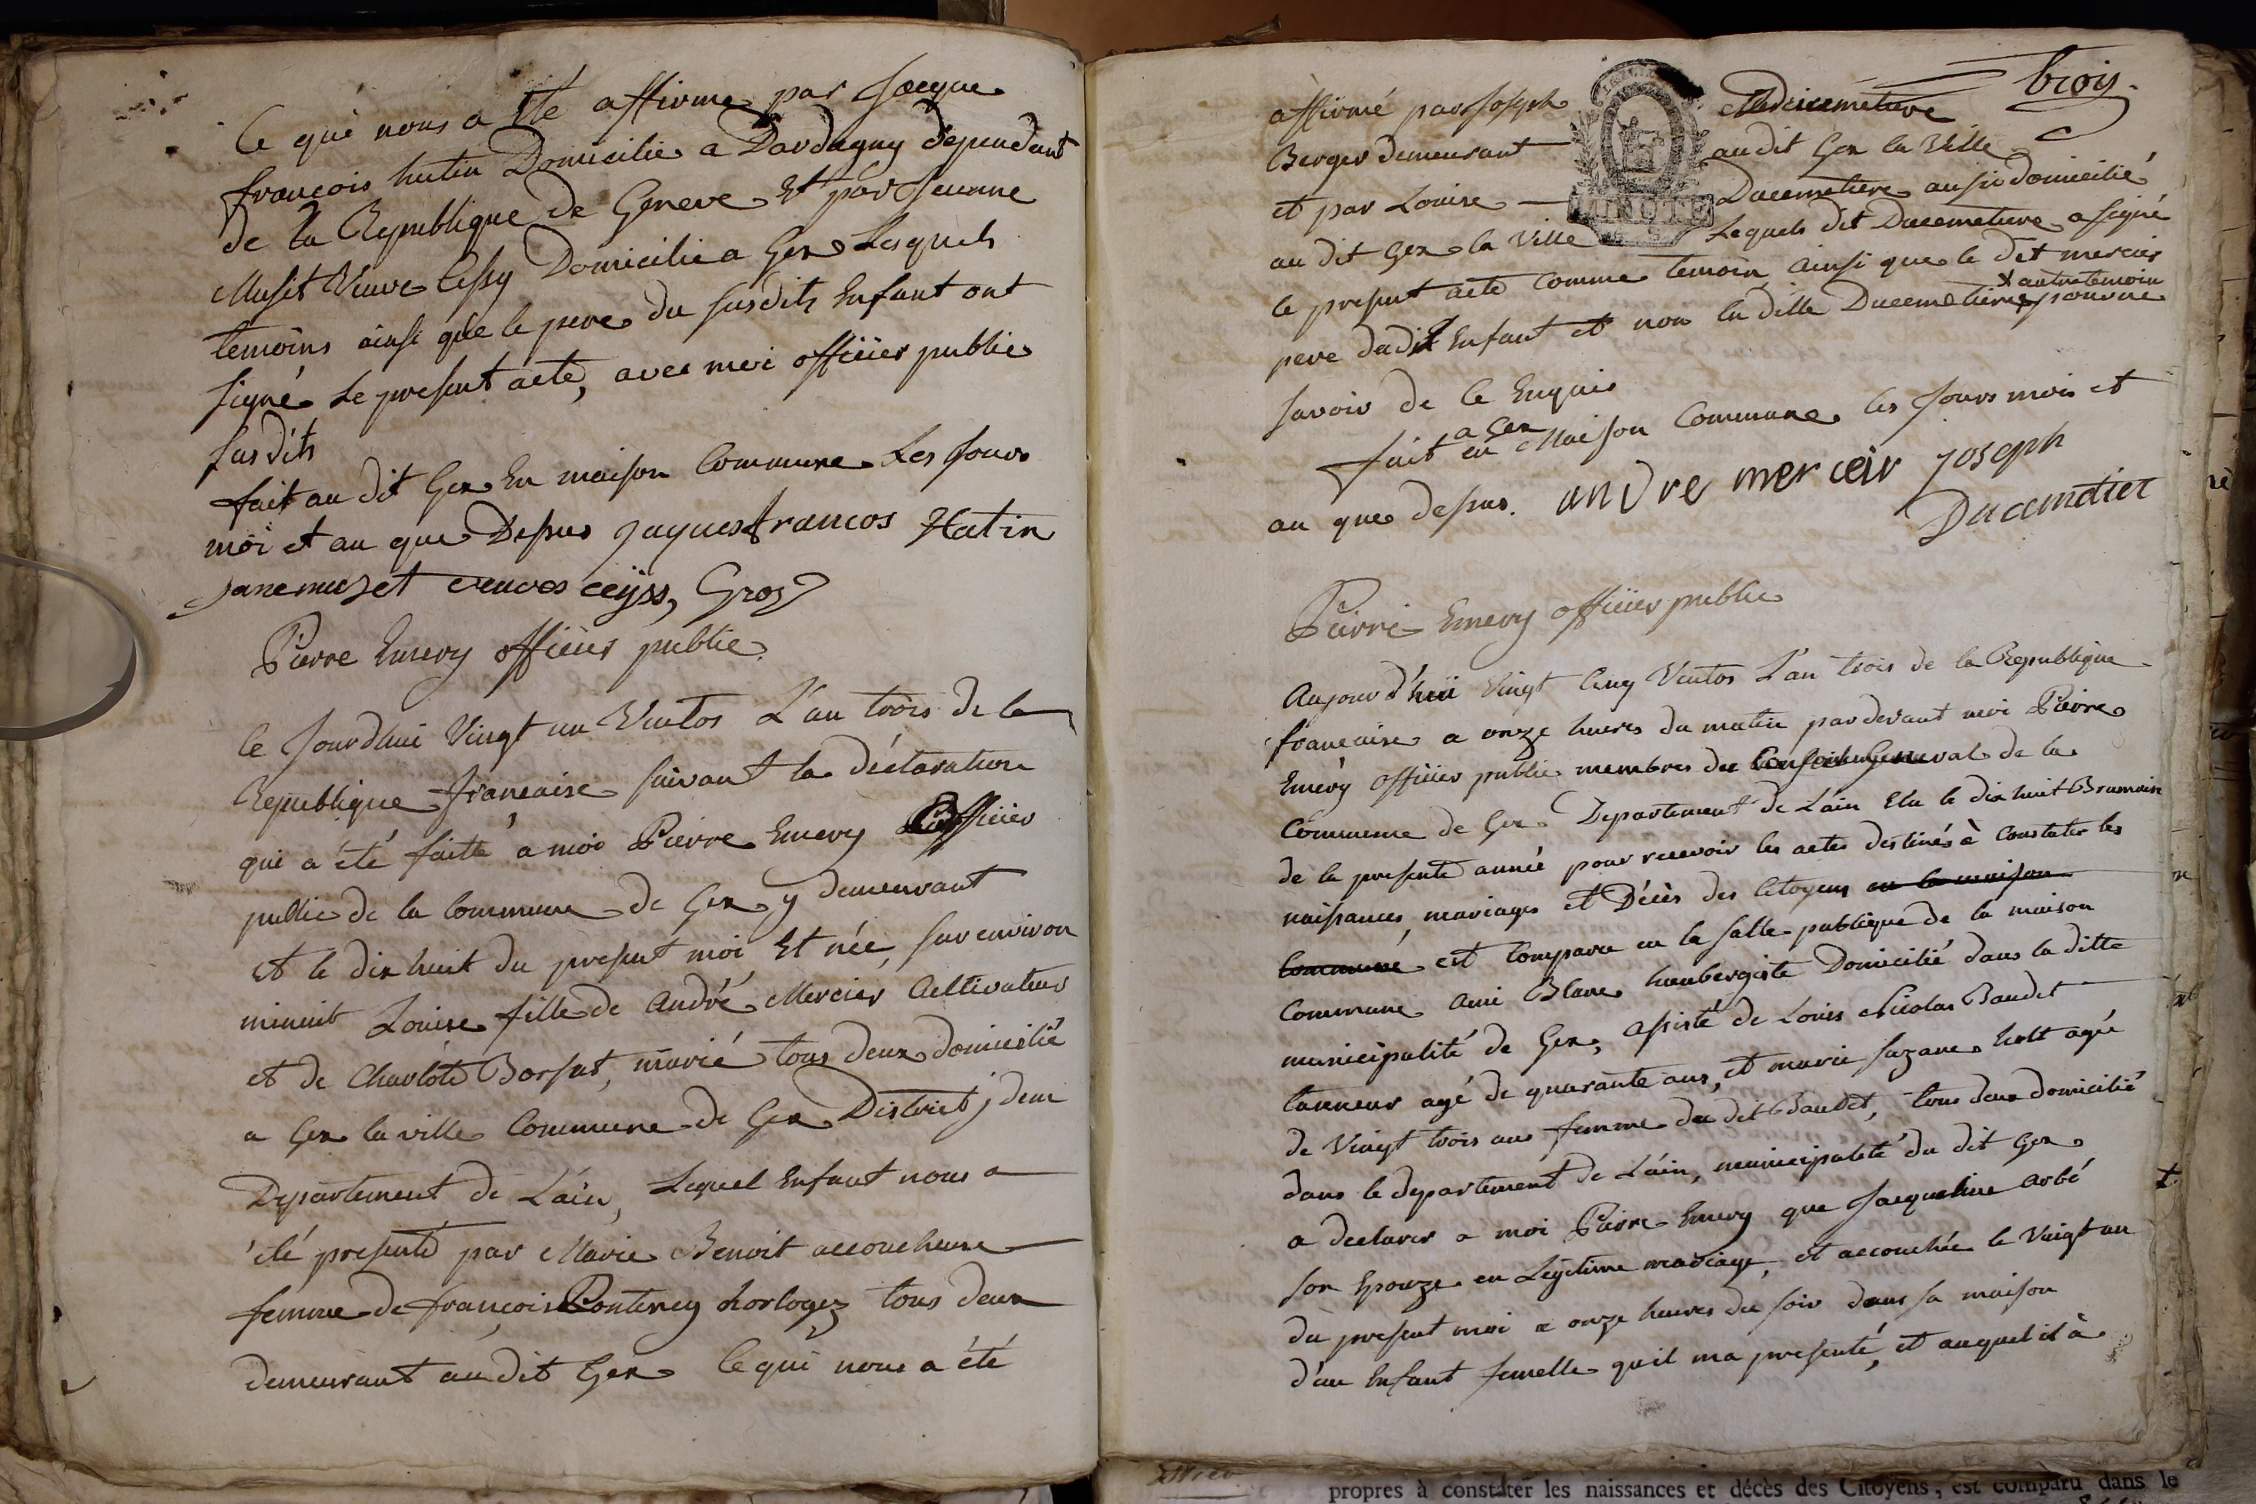 Ce qui nous a été affirmé par Jacque
françois hutin Domicilié a Dardagny dependant
de la Republique de Geneve Et par Jeanne
Muset Veuve Cessy Domicilié a Gex Lesquels
temoins ainsi que le pere du susdits Enfant ont
signé Le present acte, avec moi officier public
susdits
fait au dit Gex En maison Commune Les Jours
moi et an que Dessus Jaques francos Hutin
Jane muset veuves ceyss, Gros
Pierre Emery officier public.
Ce Jourdhui Vingt un Ventos L'an trois de la
Republique françaixe suivant la déclaration
qui a été faitte a moi Pierre Emery officier
public de la Commune de Gex y demeurant
et le dix huit du present moi Et née, sur environ
minuit Louise fille de André Mercier Cultivateur
et de Charlote Borsat, marié tous deux domicilié
a Gex la ville Commune de Gex District jdem
Departement de Lain, Lequel Enfant nous a
été presenté par Marie Benoit accoucheuse
femme de françois Pontercy horlogez tous deux
demeurant au dit Gex Ce qui nous a été
trois.
affirmé par Joseph Ducemetiere
Berger demeurant au dit Gex la Ville
et par Louise Ducemetiere aussi domicilié
au dit Gex la Ville Lequels dit Ducemetiere a signé
le present acte Comme temoin, ainsi que le dit mercier
x autre temoin
pere dudit Enfant et non la ditte Ducemetiere x pour ne
savoir de ce Enquis
a Gex
fait en Maison Commune les Jours mois et
an que dessus. andre merceir joseph
Ducemetier
Pierre Emery officier public
Aujourd'hui Vingt Cinq Ventos L'an trois de la Republique
françaixe a onze heures du matin pardevant moi Pierre
Emery officier public membres du Conseil General de la
Commune de Gex Departement de Lain Elu le dix huit Brumaire
de la presente année pour recevoir les actes destinés à Constater les
naissances, mariages et Décès des Citoyens en la maison
Commune est Comparu en la salle publique de la maison
Commune Ami Blanc haubergiste Domicilié dans la ditte
municipalité de Gex, assisté de Louis Nicolas Baudet
tanneur agé de quarante ans, et marie suzane hott agée
de Vingt trois ans femme du dit Baudet, tous deux domicilié
dans le departement de Lain, municipalité du dit Gex
a declarer a moi Pierre Emery que Jacqueline arbé
son Epouze en Legitime mariage, et accouchée le Vingt un
du present moi a onze heures du soir dans sa maison
d'un Enfant femelle quil ma presenté, et auquel il à
propres à constater les naissances et décès des Citoyens, est comparu dans le